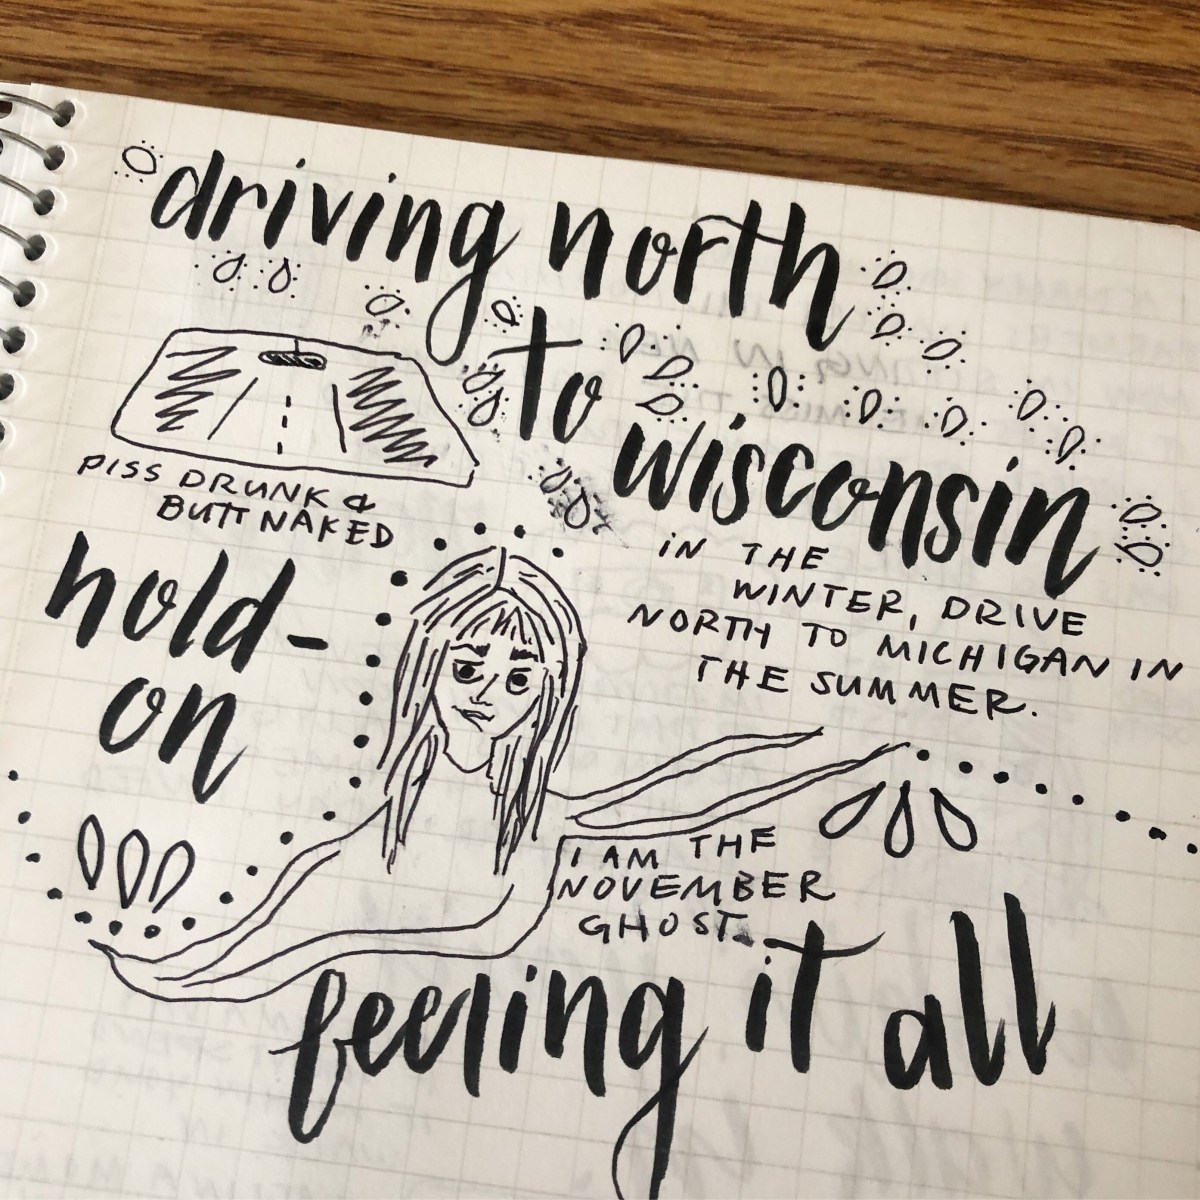 driving north
to
wisconsin
PISS DRUNK &
BUTT NAKED
IN THE
WINTER, DRIVE
NORTH TO MICHIGAN IN
THE SUMMER.
hold-
on
I AM THE
NOVEMBER
GHOST.
feeling it all